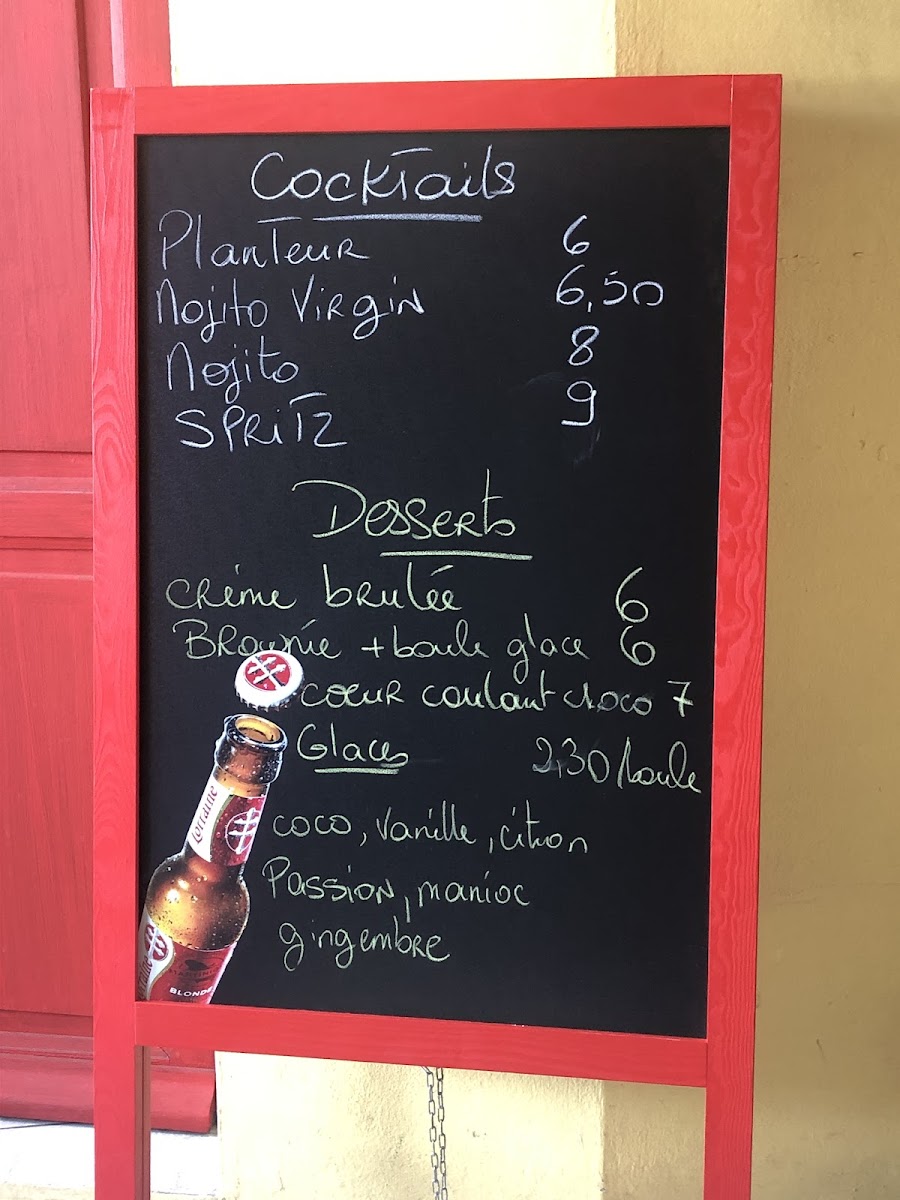 Cocktails
Planteur 6
Mojito Virgin 6,50
Mojito 8
SPRITZ 9
Desserts
crème brulée 6
Brownie + boule glace 6
coeur coulant choco 7
Glaces 2,30/boule
coco, vanille, citron
Passion, manioc
gingembre
Lorraine
BLONDE